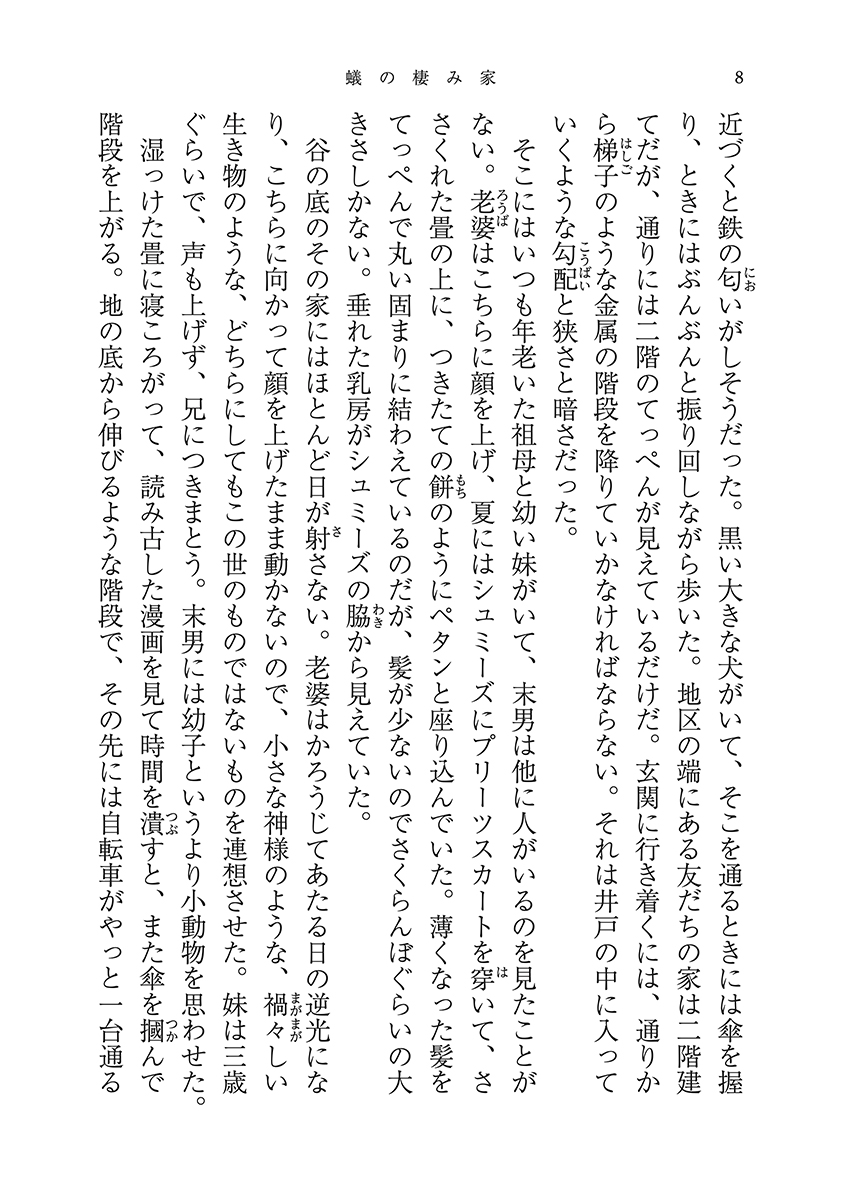 蟻の棲み家
8
近づくと鉄の匂いがしそうだった。黒い大きな犬がいて、そこを通るときには傘を握
り、ときにはぶんぶんと振り回しながら歩いた。地区の端にある友だちの家は二階建
てだが、通りには二階のてっぺんが見えているだけだ。玄関に行き着くには、通りか
ら梯子のような金属の階段を降りていかなければならない。それは井戸の中に入って
いくような勾配と狭さと暗さだった。
そこにはいつも年老いた祖母と幼い妹がいて、末男は他に人がいるのを見たことが
ない。老婆はこちらに顔を上げ、夏にはシュミーズにプリーツスカートを穿いて、さ
さくれた畳の上に、つきたての餅のようにペタンと座り込んでいた。薄くなった髪を
てっぺんで丸い固まりに結わえているのだが、髪が少ないのでさくらんぼぐらいの大
きさしかない。垂れた乳房がシュミーズの脇から見えていた。
谷の底のその家にはほとんど日が射さない。老婆はかろうじてあたる日の逆光にな
り、こちらに向かって顔を上げたまま動かないので、小さな神様のような、禍々しい
生き物のような、どちらにしてもこの世のものではないものを連想させた。妹は三歳
ぐらいで、声も上げず、兄につきまとう。末男には幼子というより小動物を思わせた。
湿っけた畳に寝ころがって、読み古した漫画を見て時間を潰すと、また傘を摑んで
階段を上がる。地の底から伸びるような階段で、その先には自転車がやっと一台通る